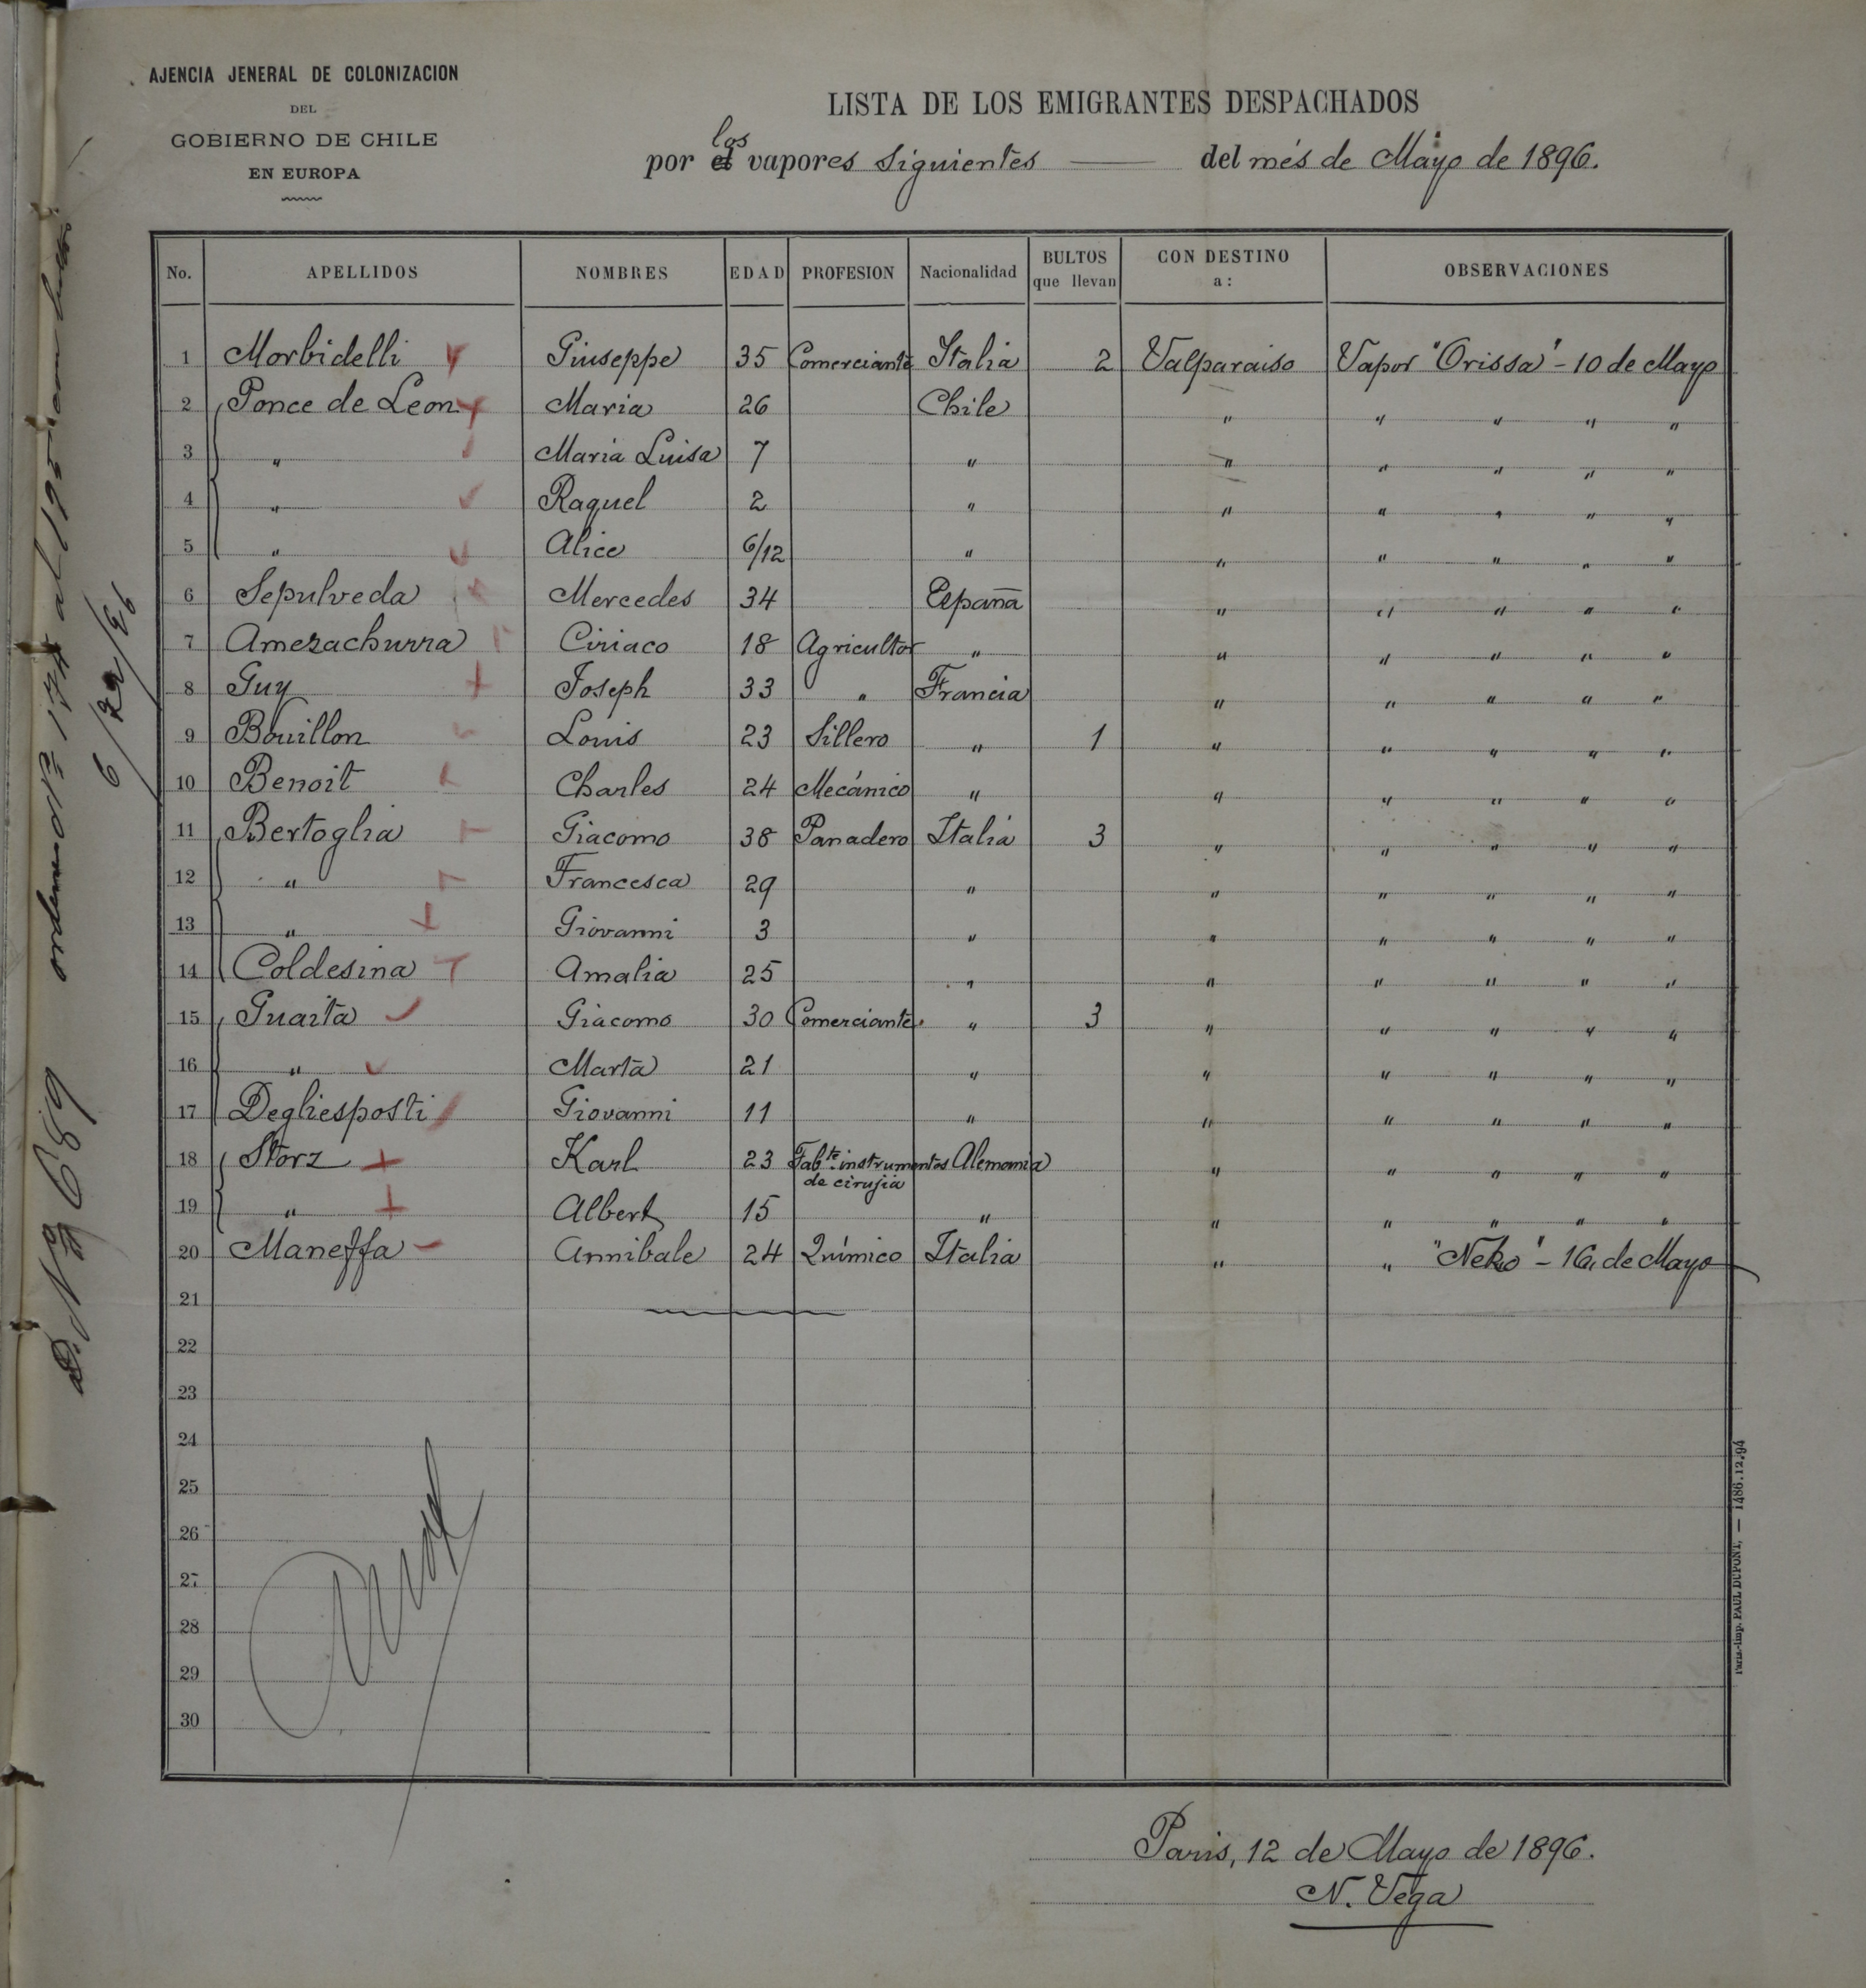 AJENCIA JENERAL DE COLONIZACION
DEL
GOBIERNO DE CHILE
EN EUROPA
LISTA DE LOS EMIGRANTES DESPACHADOS
por los vapores siguientes — del més de Mayo de 1896.
No. APELLIDOS NOMBRES EDAD PROFESION Nacionalidad BULTOS que llevan CON DESTINO a: OBSERVACIONES
1 Morbidelli Giuseppe 35 Comerciante Italia 2 Valparaiso Vapor "Orissa" - 10 de Mayo
2 Ponce de Leon Maria 26 Chile " " " " "
3 " Maria Luisa 7 " " " " " "
4 " Raquel 2 " " " " " "
5 " Alice 6/12 " " " " " "
6 Sepulveda Mercedes 34 España " " " " "
7 Amezachurra Ciriaco 18 Agricultor " " " " " "
8 Guy Joseph 33 " Francia " " " " "
9 Bouillon Louis 23 Sillero " 1 " " " " "
10 Benoit Charles 24 Mecánico " " " " " "
11 Bertoglia Giacomo 38 Panadero Italia 3 " " " " "
12 " Francesca 29 " " " " " "
13 " Giovanni 3 " " " " " "
14 Coldesina Amalia 25 " " " " " "
15 Guaita Giacomo 30 Comerciante " 3 " " " " "
16 " Marta 21 " " " " " "
17 Degliesposti Giovanni 11 " " " " " "
18 Storz Karl 23 Fabte. instrumentos de cirujia Alemania " " " " "
19 " Albert 15 " " " " " "
20 Maneffa Annibale 24 Químico Italia " " "Neko" - 16 de Mayo
21
22
23
24
25
26
27
28
29
30
Paris, 12 de Mayo de 1896.
N. Vega
Paris.-Imp. PAUL DUPONT, — 1486.12.94